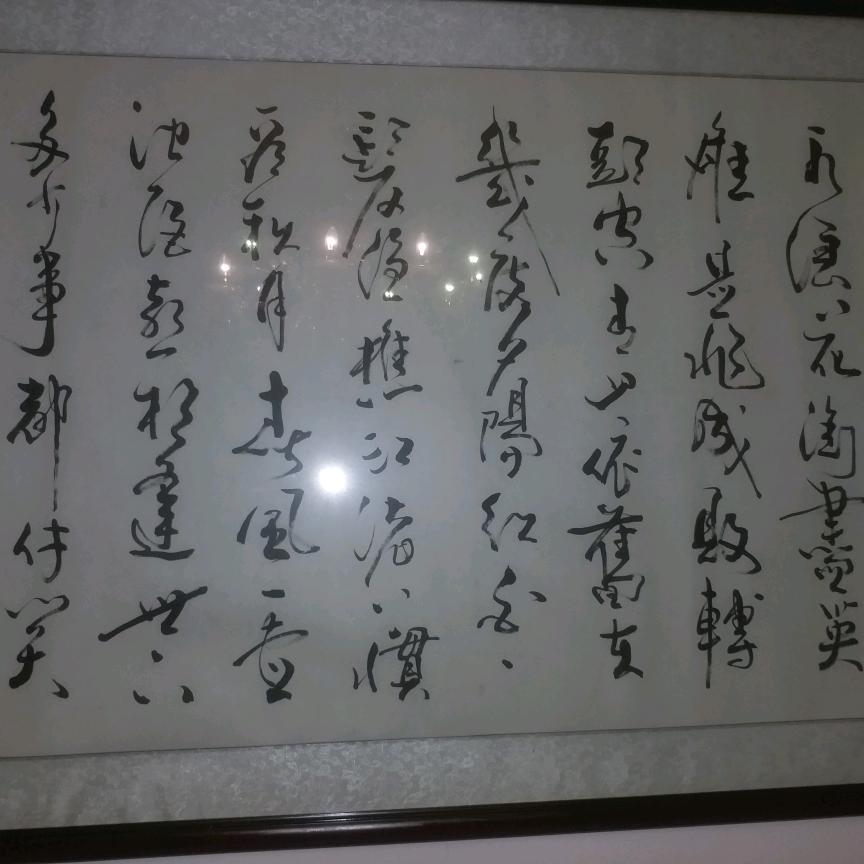 水浪花淘盡英
雄是非成敗轉
頭空青山依舊在
幾度夕陽紅白
髮漁樵江渚上慣
看秋月春風一壺
濁酒喜相逢古今
多少事都付笑